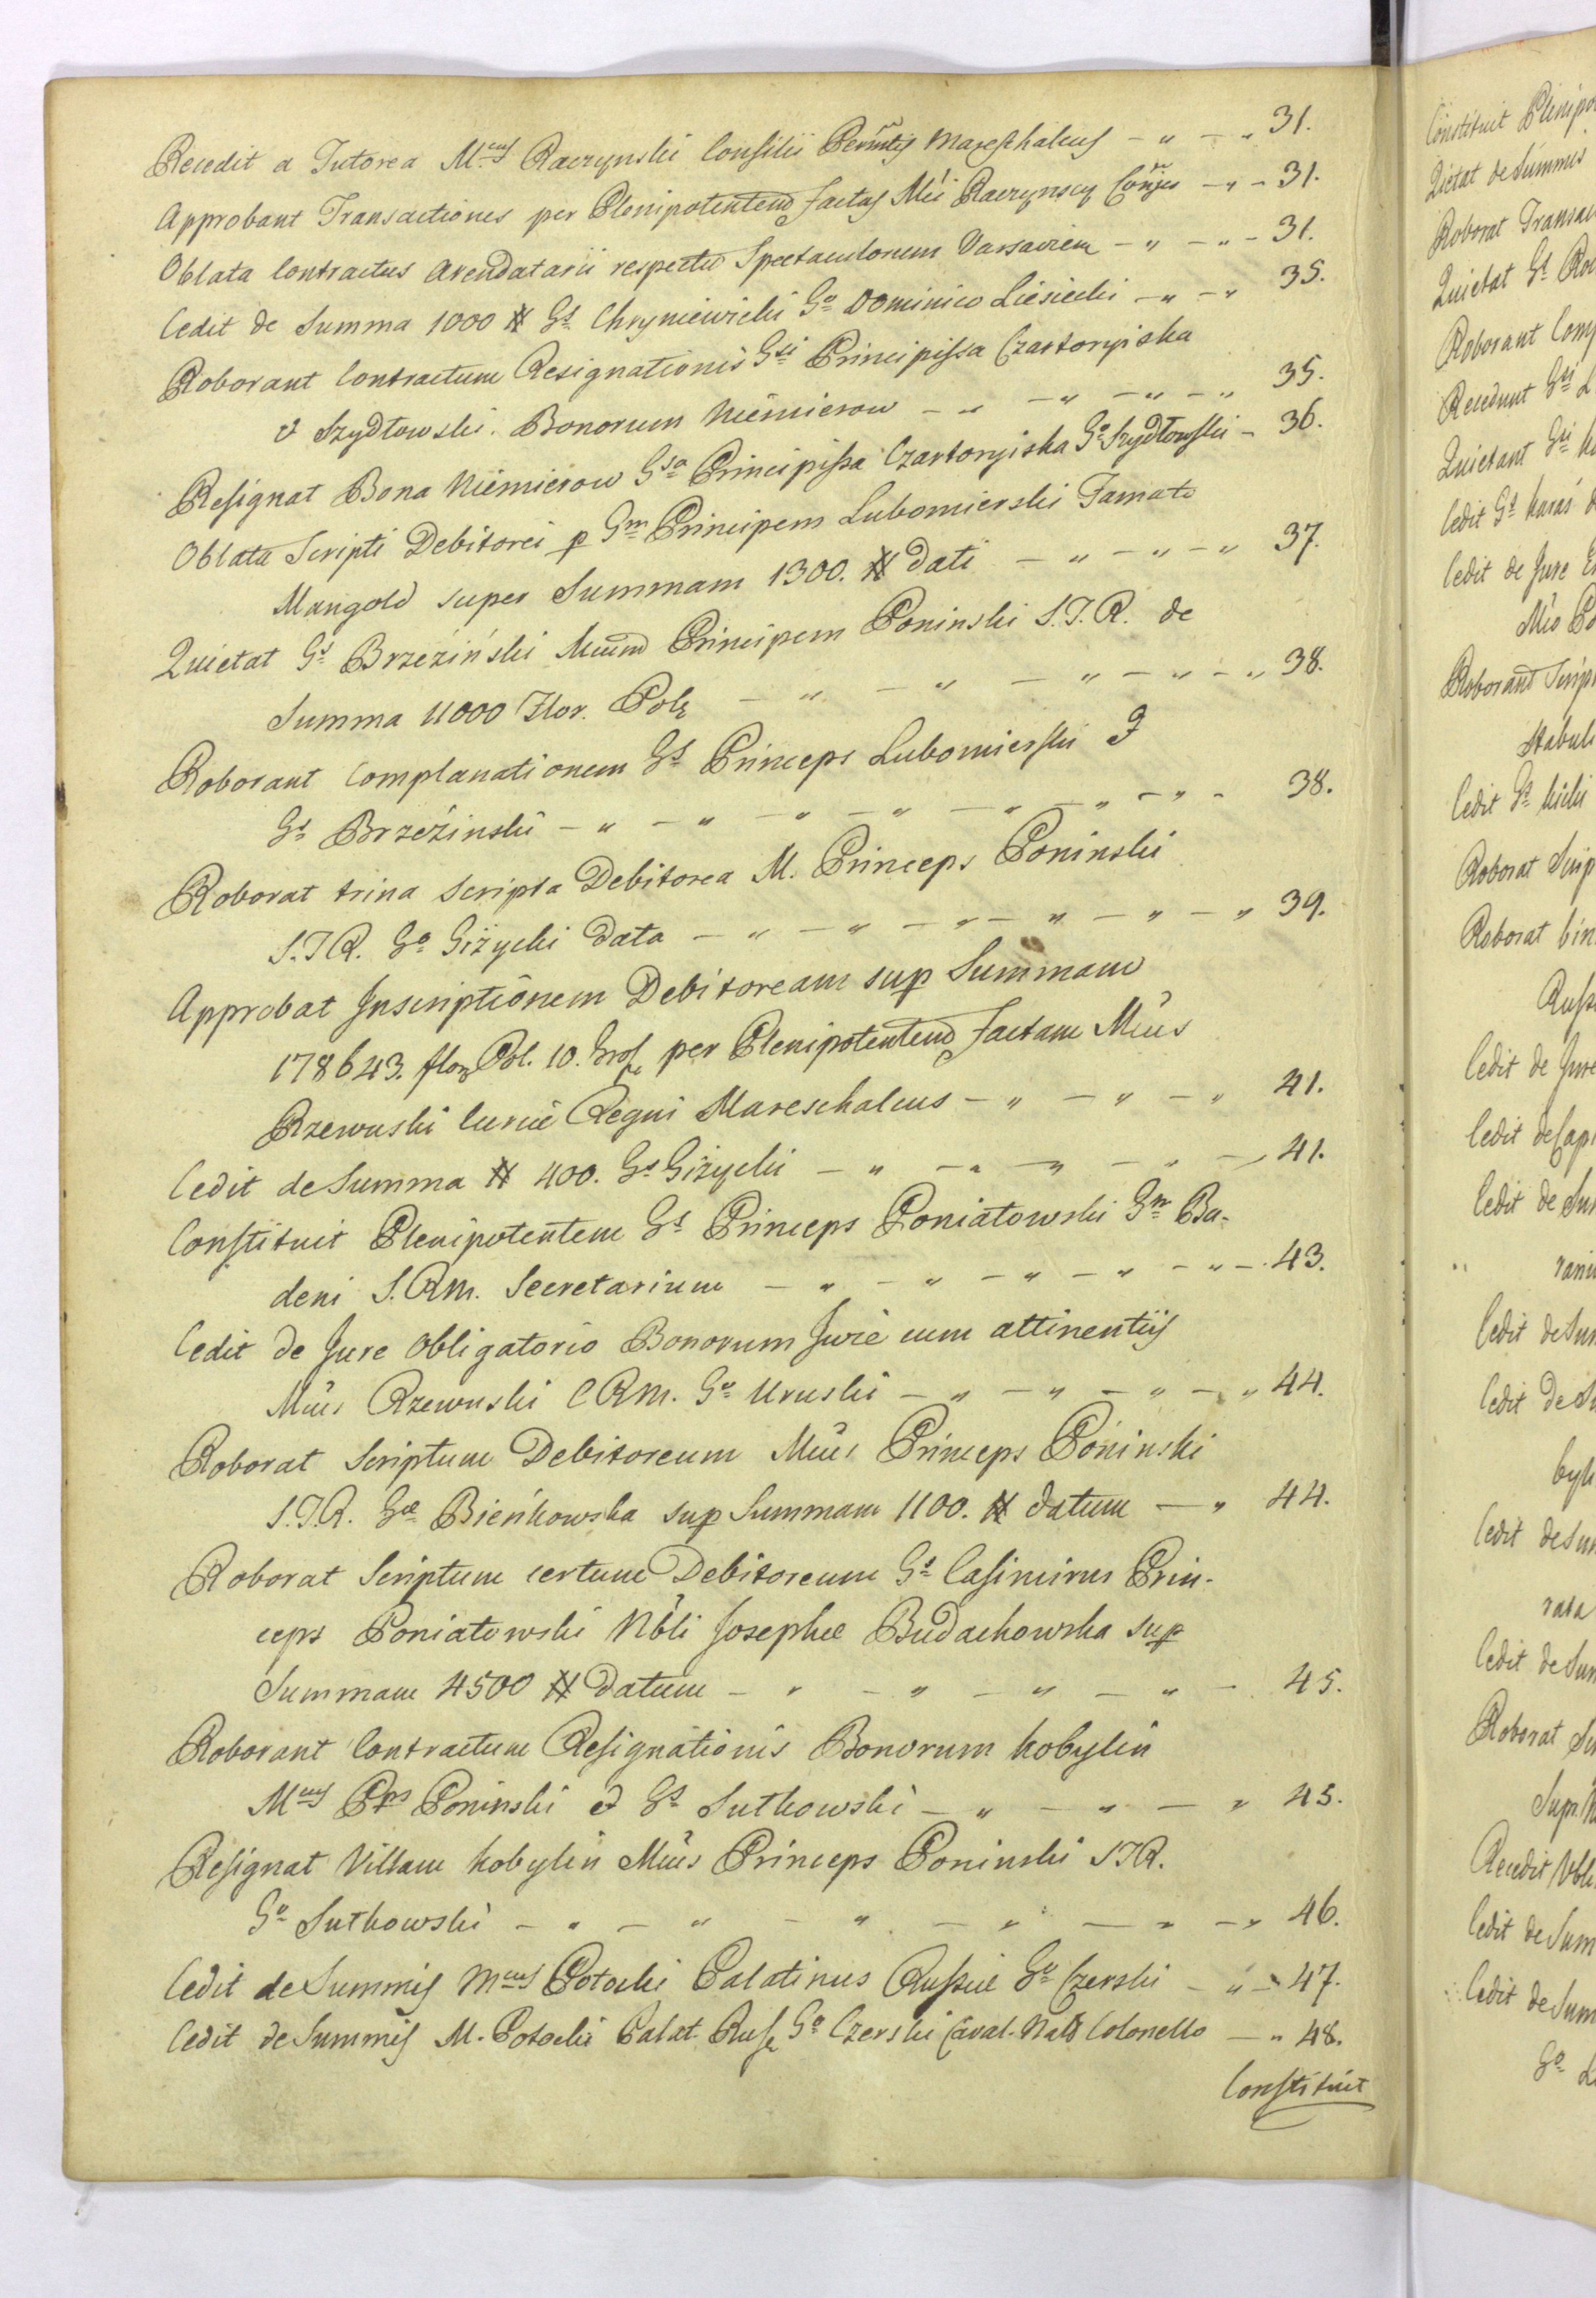 Recedit a Tutorea M<sup>cus</sup> Raczynski Consilii Perm̃tis Mareschalcus — " — " 31.
Approbant Transactiones per Plenipotentem factas Mci Raczynscy Coñjes — " — 31.
Oblata Contractus Arendatarii respectu Spectaculorum Varsaviem — " — " — 31.
Cedit de Summa 1000 # Gs Chryniewicki Go Dominico Liesiecki — " — " 35.
Roborant Contractum Resignationis Gsi Principissa Czartoryiska
& Szydłowski. Bonorum Niemierow — " — " — " — " 35.
Resignat Bona Niemierow Gsa Principissa Czartoryiska Go Szydłowski — 36.
Oblata Scripti Debitorei p Gm Principem Lubomierski Famato
Mangold super Summam 1300. # dati — " — " — " 37.
Quietat Gs Brzeziński Mcum Principem Poninski S.T.R. de
Summa 11000 Flor. Pol — " — " — " — " — " 38.
Roborant Complanationem Gs Princeps Lubomierski &
Gs Brzeżinski — " — " — " — " — " — " — " — 38.
Roborat trina Scripta Debitorea M. Princeps Poninski
S.T.R. Go Giżycki data — " — " — " — " — " — " 39.
Approbat Inscriptionem Debitoream sup Summam
178643. flor Pol. 10. Gros per Plenipotentem factam Mcus
Rzewuski Curiæ Regni Mareschalcus — " — " — " 41.
Cedit de Summa # 400. Gs Giżycki — " — " — " — " — 41.
Constituit Plenipotentem Gs Princeps Poniatowski Gm Ba-
deni S.R.M. Secretarium — " — " — " — " — " — 43.
Cedit de Jure Obligatorio Bonorum Jurie cum attinentiis
Mcus Rzewuski C R M. Go Uruski — " — " — " — " 44.
Roborat Scriptum Debitoreum Mcus Princeps Poninski
S.T.R. Gæ Bieńkowska sup Summam 1100. # datum — " 44.
Roborat Scriptum certum Debitoreum Gs Casimirus Prin-
ceps Poniatowski Nbli Josephæ Budachowska sup
Summam 4500 # datum — " — " — " — " — 45.
Roborant Contractum Resignationis Bonorum Kobylin
M<sup>cus</sup> Pps Poninski & Gs Sutkowski — " — " — " 45.
Resignat Villam Kobylin Mcus Princeps Poninski S.T.R.
Go Sutkowski — " — " — " — " — " — " 46.
Cedit de Summis M<sup>cus</sup> Potocki Palatinus Russiæ Go Czerski — " — 47.
Cedit de Summis M. Potocki Palat. Rus Go Czerski Caval. Nat Colonello — " 48.
Constituit
Constituit Plenipo
Quietat de Summis
Roborat Transac
Quietat Gs
Roborant Comp
Recedunt Gsi
Quietant Gsi
Cedit Gs Karaś
Cedit de Jure
Mco Po
Roborant Scrip
Stabuli
Cedit Gs Kicki
Roborat Scrip
Roborat bin
Russ
Cedit de Jure
Cedit de Cap
Cedit de Su
Cedit de Sum
Cedit de
Cedit de Su
rata
Cedit de Sum
Roborat
Supr
Recedit Nbli
Cedit de Sum
Cedit de Sum
Go